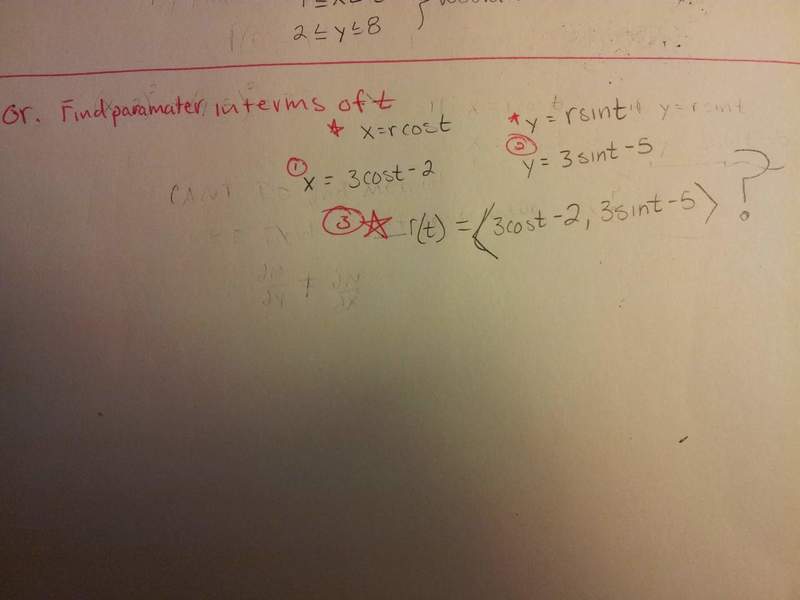 2 ≤ y ≤ 8
Or. Find paramater, in terms of t
* x = r cost * y = r sint y = r sint
① x = 3cost - 2 ② y = 3sint - 5
③ ☆ r(t) = ⟨3cost - 2, 3sint - 5⟩ ?